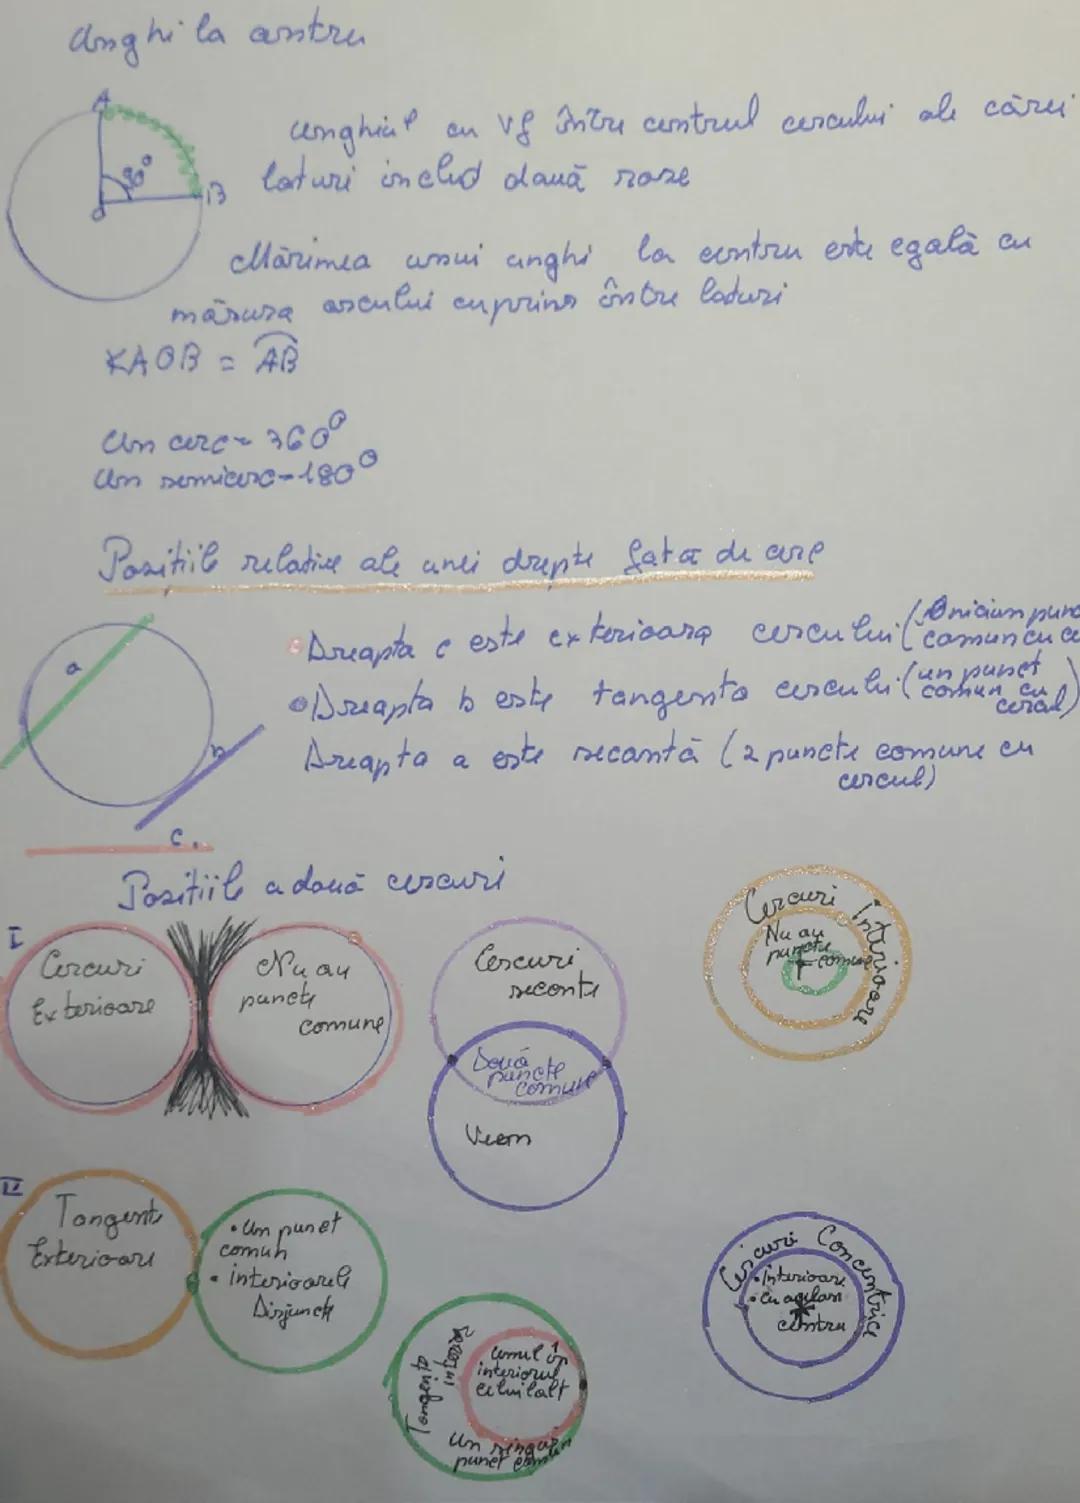 Unghi la centru
A
90°
O
B
unghiul cu vf între centrul cercului ale cărui
laturi includ două raze
Mărimea unui unghi la centru este egală cu
măsura arcului cuprins între laturi
∢AOB = AB
Un cerc - 360°
Un semicerc - 180°
Pozitiile relative ale unei drepte fata de cerc
a
b
c.
Dreapta c este exterioara cercului (niciun punc
comun cu ce
Dreapta b este tangenta cercului (un punct
comun cu
cercul)
Dreapta a este secantă (2 puncte comune cu
cercul)
Pozitiile a două cercuri
I
Cercuri
Exterioare
Nu au
puncte
comune
Cercuri
secante
Două
puncte
comune
Venn
Cercuri Interioare
Nu au
puncte
comune
II
Tangente
Exterioare
• Un punct
comun
• interioarele
Disjuncte
Tangente
interioare
unul în
interiorul
celuilalt
Un singur
punct comun
Cercuri Concentrice
• Interioare
• cu acelasi
centru